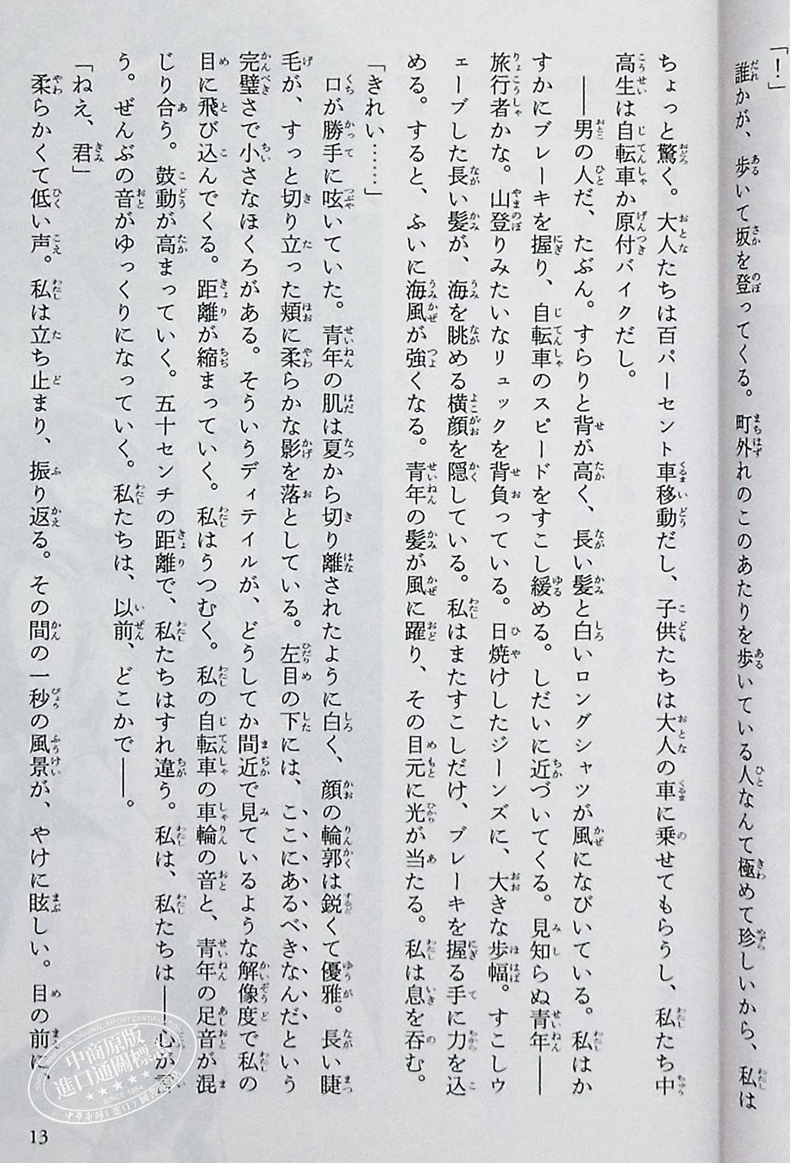 「！」
誰かが、歩いて坂を登ってくる。町外れのこのあたりを歩いている人なんて極めて珍しいから、私は
ちょっと驚く。大人たちは百パーセント車移動だし、子供たちは大人の車に乗せてもらうし、私たち中
高生は自転車か原付バイクだし。
――男の人だ、たぶん。すらりと背が高く、長い髪と白いロングシャツが風になびいている。私はか
すかにブレーキを握り、自転車のスピードをすこし緩める。しだいに近づいてくる。見知らぬ青年――
旅行者かな。山登りみたいなリュックを背負っている。日焼けしたジーンズに、大きな歩幅。すこしウ
ェーブした長い髪が、海を眺める横顔を隠している。私はまたすこしだけ、ブレーキを握る手に力を込
める。すると、ふいに海風が強くなる。青年の髪が風に躍り、その目元に光が当たる。私は息を呑む。
「きれい……」
口が勝手に呟いていた。青年の肌は夏から切り離されたように白く、顔の輪郭は鋭くて優雅。長い睫
毛が、すっと切り立った頬に柔らかな影を落としている。左目の下には、ここにあるべきなんだという
完璧さで小さなほくろがある。そういうディテイルが、どうしてか間近で見ているような解像度で私の
目に飛び込んでくる。距離が縮まっていく。私はうつむく。私の自転車の車輪の音と、青年の足音が混
じり合う。鼓動が高まっていく。五十センチの距離で、私たちはすれ違う。私は、私たちは――心が言
う。ぜんぶの音がゆっくりになっていく。私たちは、以前、どこかで――。
「ねえ、君」
柔らかくて低い声。私は立ち止まり、振り返る。その間の一秒の風景が、やけに眩しい。目の前に、
13
中商原版
進口通關標